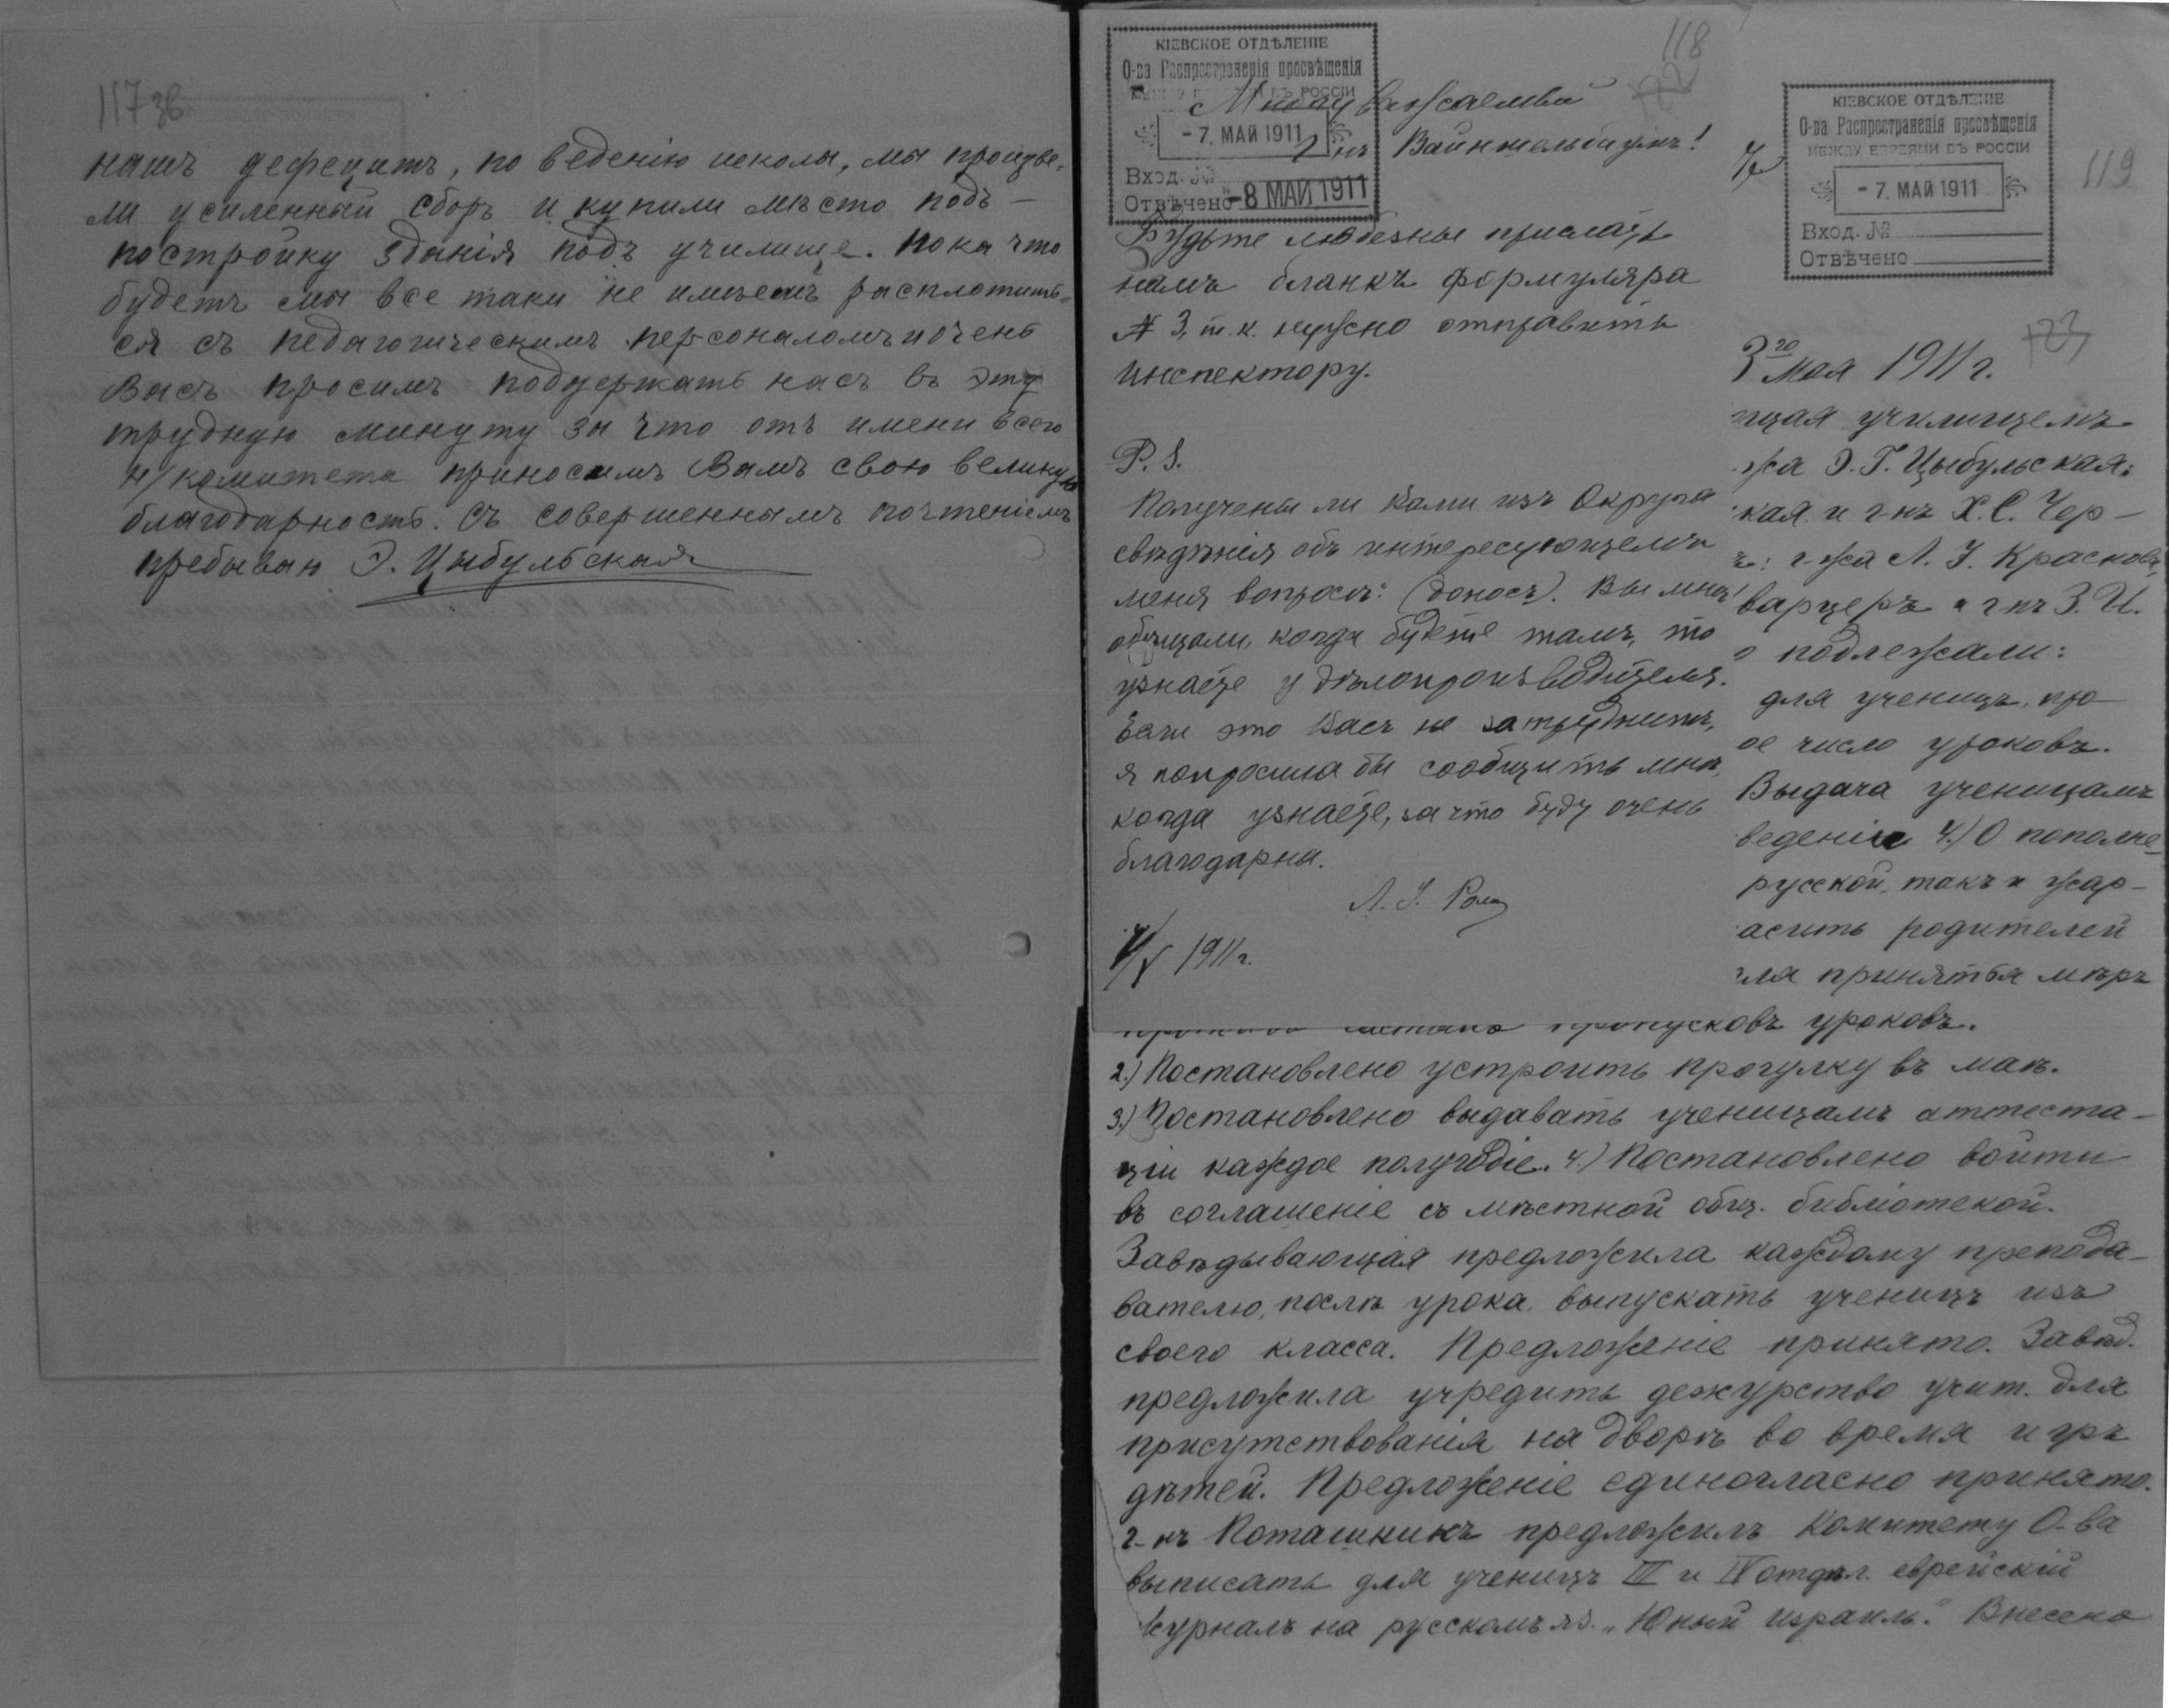 117 зв
нашъ дефецитъ, по веденію школы, мы произве-
ли усиленный сборъ и купили мѣсто подъ -
постройку зданія подъ училище. Пока что
будетъ мы все таки не имѣемъ расплотить-
ся съ педагогическимъ персоналомъ и очень
Васъ просимъ поддержать насъ въ эту
трудную минуту за что отъ имени всего
н/комитета приносимъ Вамъ свою великую
благодарность. Съ совершеннымъ почтеніемъ
пребываю Э. Цыбульская
118
КІЕВСКОЕ ОТДѢЛЕНІЕ
О-ва Распространенія просвѣщенія
МЕЖДУ ЕВРЕЯМИ ВЪ РОССІИ
- 7. МАЙ 1911
Вход. №
Отвѣчено -8 МАЙ 1911
Многоуважаемый
Г-нъ Вайнтельбаумъ!
Будьте любезны прислать
намъ бланкъ формуляра
№ 3, т. к. нужно отправить
инспектору.
P. S.
Получены ли Вами изъ Округа
свѣдѣнія объ интересующемъ
меня вопросѣ: (доносъ). Вы мнѣ
обѣщали, когда будете тамъ, то
узнаете у дѣлопроизводителя.
Если это Васъ не затруднитъ,
я попросила бы сообщить мнѣ,
когда узнаете, за что буду очень
благодарна.
Л. У.
4/V 1911 г.
КІЕВСКОЕ ОТДѢЛЕНІЕ
О-ва Распространенія просвѣщенія
МЕЖДУ ЕВРЕЯМИ ВЪ РОССІИ
- 7. МАЙ 1911
Вход. №
Отвѣчено
119
123
3го Мая 1911 г.
щая училищемъ
жа Э. Г. Цыбульская;
кая и г-нъ Х. С. Чер-
ъ: г-жа Л. У. Краснова,
варцеръ и г-нъ З. И.
о подлежали:
для ученицъ, про-
ое число уроковъ.
Выдача ученицамъ
веденіи 4.) О пополне-
русской, такъ и жар-
асить родителей
для принятія мѣръ
пропусковъ уроковъ.
2.) Постановлено устроить прогулку въ маѣ.
3.) Постановлено выдавать ученицамъ аттеста-
ціи каждое полугодіе. 4.) Постановлено войти
въ соглашеніе съ мѣстной общ. библіотекой.
Завѣдывающая предложила каждому препода-
вателю, послѣ урока, выпускать ученицъ изъ
своего класса. Предложеніе принято. Завѣд.
предложила учредить дежурство учит. для
присутствованія на дворѣ во время игръ
дѣтей. Предложеніе единогласно принято.
г-нъ Поташникъ предложилъ Комитету О-ва
выписать для ученицъ III и IV отдѣл. еврейскій
журналъ на русскомъ яз. „Юный израиль". Внесено